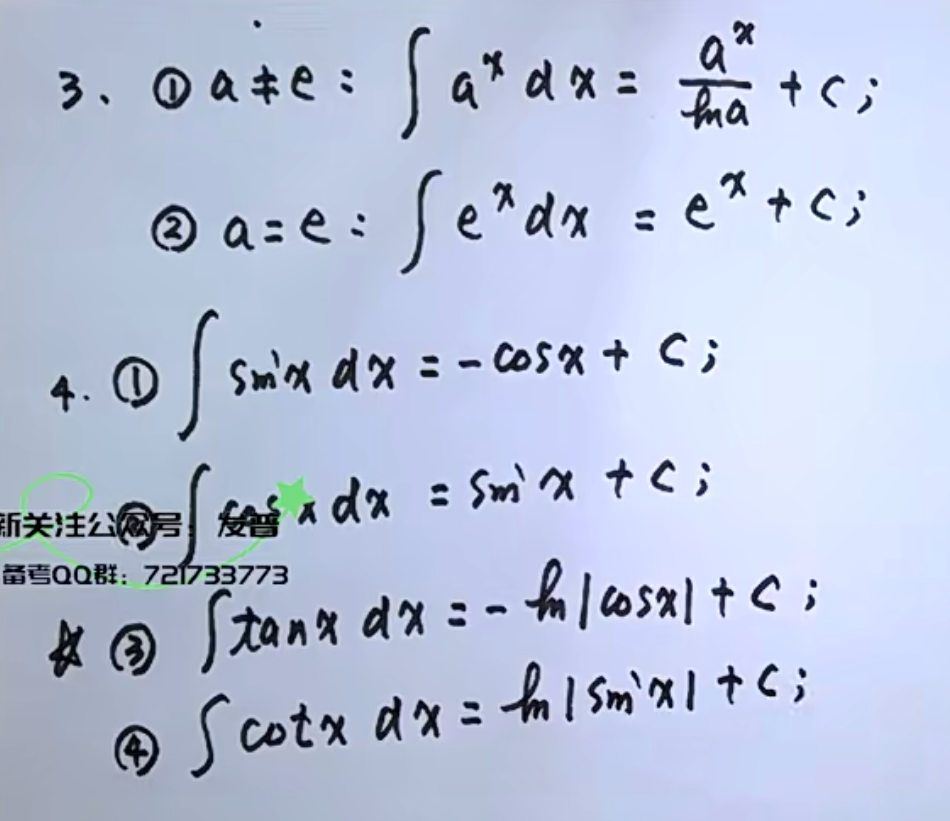 3. ① a≠e: ∫ aˣ dx = aˣ/ln a + C;
② a=e: ∫ eˣ dx = eˣ + C;
4. ① ∫ sinx dx = -cosx + C;
② ∫ cosx dx = sinx + C;
新关注公众号：发普
备考QQ群：721733773
☆ ③ ∫ tanx dx = -ln|cosx| + C;
④ ∫ cotx dx = ln|sinx| + C;